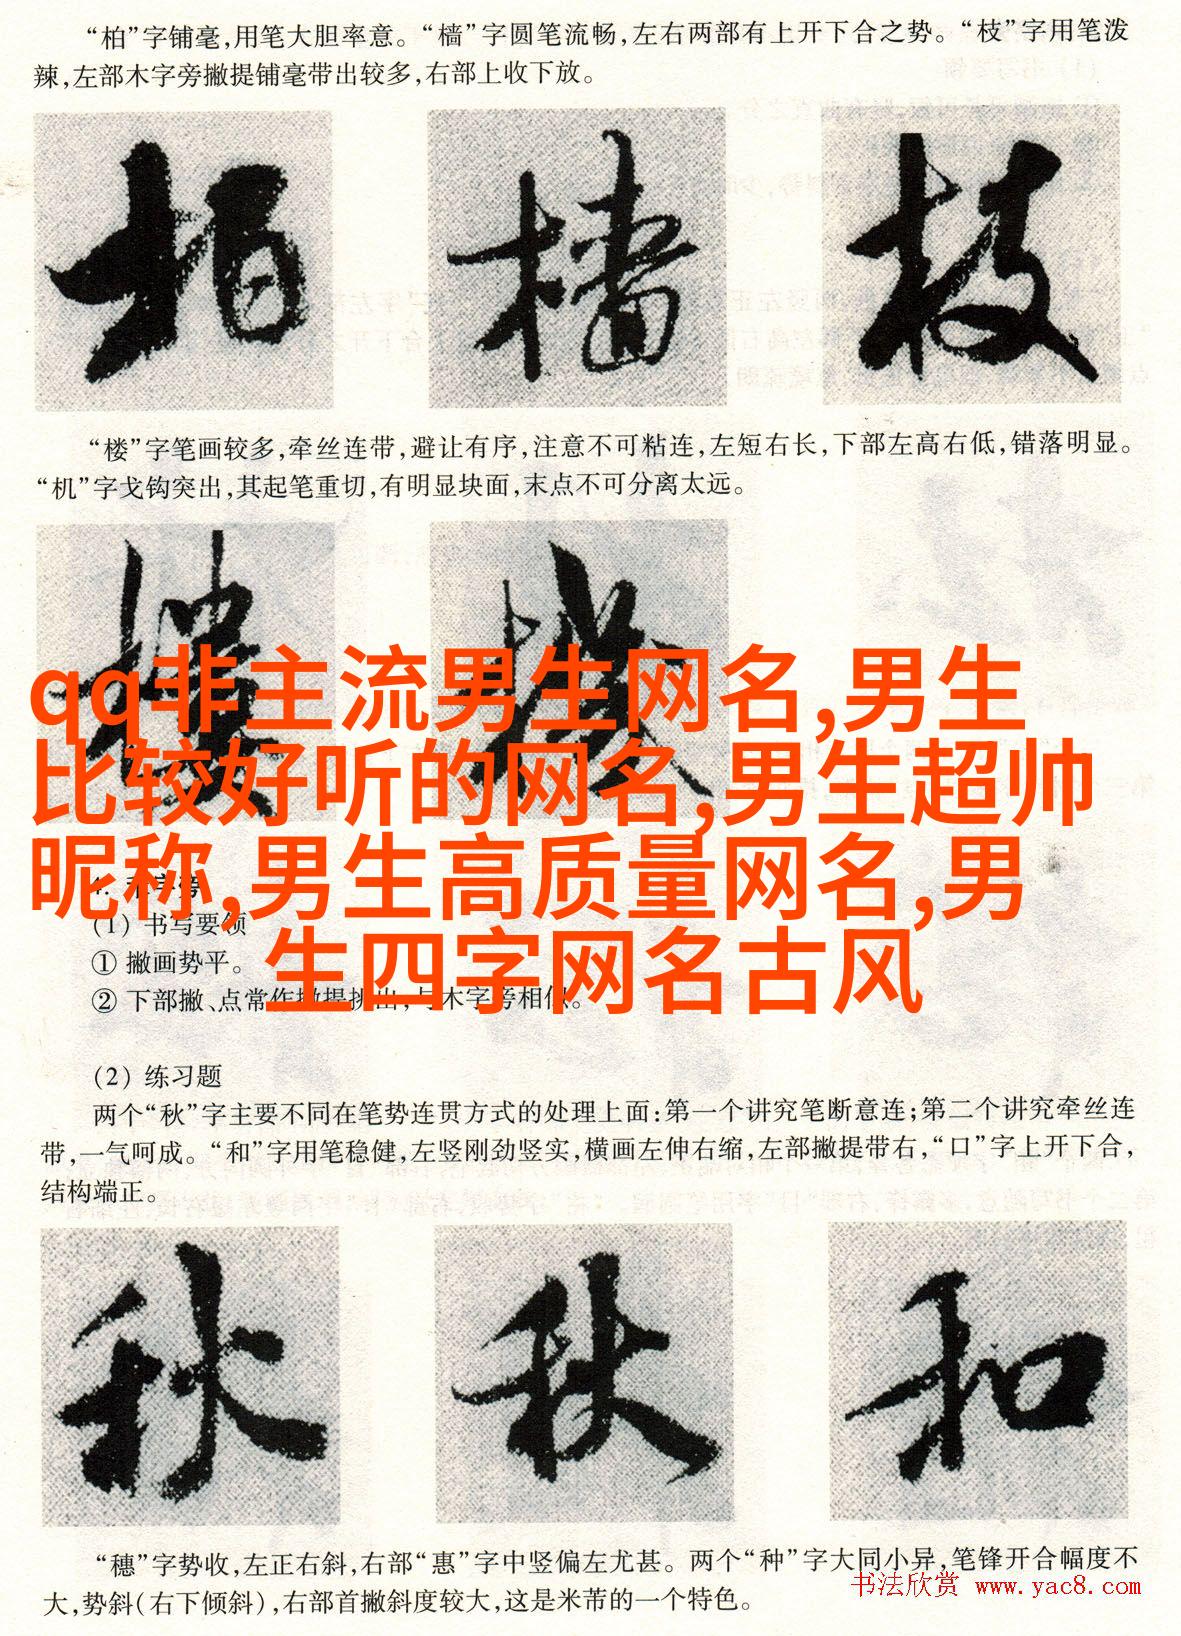 “柏”字铺毫,用笔大胆率意。“樯”字圆笔流畅,左右两部有上开下合之势。“枝”字用笔泼
辣,左部木字旁撇提铺毫带出较多,右部上收下放。
柏 樯 枝
“楼”字笔画较多,牵丝连带,避让有序,注意不可粘连,左短右长,下部左高右低,错落明显。
“机”字戈钩突出,其起笔重切,有明显块面,末点不可分离太远。
qq非主流男生网名,男生
比较好听的网名,男生超帅
昵称,男生高质量网名,男
生四字网名古风
(1) 书写要领
① 撇画势平。
② 下部撇、点常作撇提挑出,与木字旁相似。
(2) 练习题
两个“秋”字主要不同在笔势连贯方式的处理上面:第一个讲究笔断意连;第二个讲究牵丝连
带,一气呵成。“和”字用笔稳健,左竖刚劲竖实,横画左伸右缩,左部撇提带右,“口”字上开下合,
结构端正。
秋 秋 和
“穗”字势收,左正右斜,右部“惠”字中竖偏左尤甚。两个“种”字大同小异,笔锋开合幅度不
大,势斜(右下倾斜),右部首撇斜度较大,这是米芾的一个特色。
书法欣赏 www.yac8.com